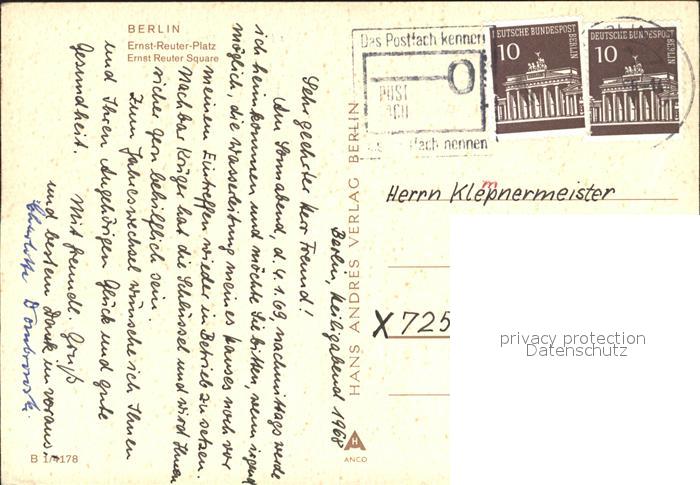 BERLIN
Ernst-Reuter-Platz
Ernst Reuter Square
Berlin, Heiligabend 1968
Sehr geehrter Herr Freund!
Am Sonnabend, d. 4.1.69, nachmittags werde
ich heimkommen und möchte Sie bitten, wenn irgend
möglich, die Wasserleitung meines Hauses noch vor
meinem Eintreffen wieder in Betrieb zu setzen.
Nachbar Krüger hat die Schlüssel und wird Ihnen
sicher gern behilflich sein.
Zum Jahreswechsel wünsche ich Ihnen
und Ihren Angehörigen Glück und gute
Gesundheit.
Mit freundl. Gruß
und bestem Dank im voraus!
Charlotte Dombrowski.
B 1/4178
HANS ANDRES VERLAG BERLIN
H
A
ANCO
Das Postfach kennen
POST
nennen
DEUTSCHE BUNDESPOST
BERLIN
10
DEUTSCHE BUNDESPOST
BERLIN
10
Herrn Klempnermeister
X 725
privacy protection
Datenschutz